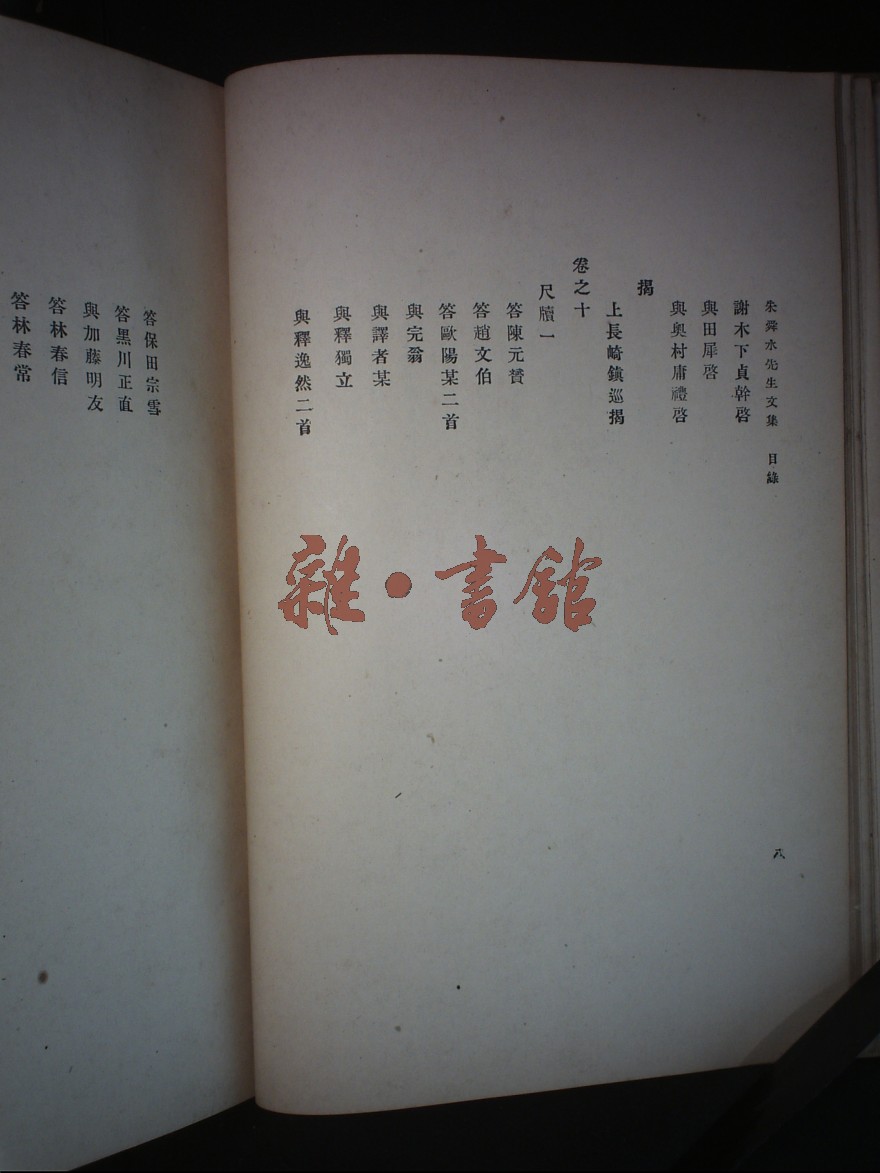 朱舜水先生文集 目錄
謝木下貞幹啓
與田犀啓
與奥村庸禮啓
揭
上長崎鎭巡揭
卷之十
尺牘一
答陳元贇
答趙文伯
答歐陽某二首
與完翁
與譯者某
與釋獨立
與釋逸然二首
八
雜·書館
答保田宗雪
答黑川正直
與加藤明友
答林春信
答林春常